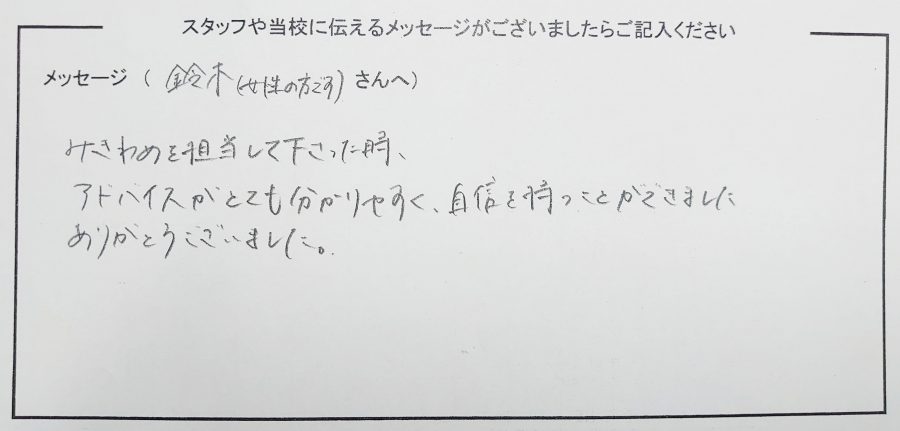 スタッフや当校に伝えるメッセージがございましたらご記入ください
メッセージ（ 鈴木(女性の方です) さんへ）
みきわめを担当して下さった時、
アドバイスがとても分かりやすく、自信を持つことができました
ありがとうございました。